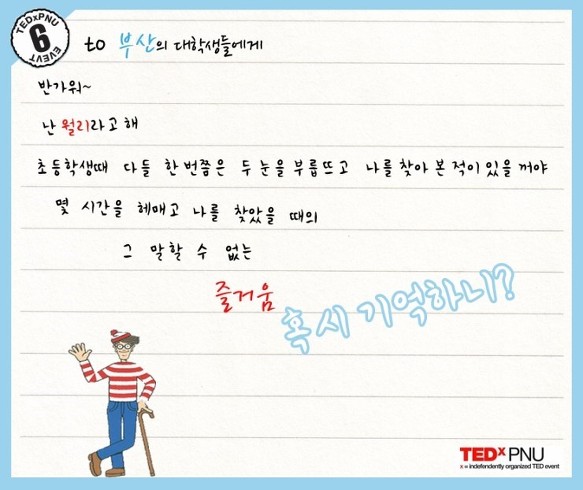 TEDxPNU
6
EVEVT
to 부산의 대학생들에게
반가워~
난 월리라고 해
초등학생때 다들 한번쯤은 두 눈을 부릅뜨고 나를 찾아 본 적이 있을 꺼야
몇 시간을 헤매고 나를 찾았을 때의
그 말할 수 없는
즐거움
혹시 기억하니?
TEDx PNU
x = indefendently organized TED event